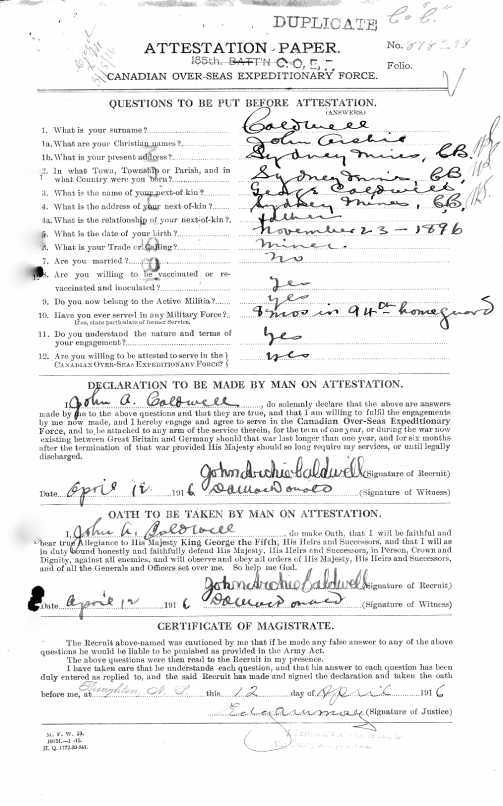 DUPLICATE
ATTESTATION PAPER.
No.
185th. BATT'N C.O.E.F.
Folio.
CANADIAN OVER-SEAS EXPEDITIONARY FORCE.
QUESTIONS TO BE PUT BEFORE ATTESTATION.
(ANSWERS)
1. What is your surname? Caldwell
1a. What are your Christian names? John Archie
1b. What is your present address? Sydney Mines, C.B.
2. In what Town, Township or Parish, and in
what Country were you born? Sydney Mines, C.B. N.S.
3. What is the name of your next-of-kin? George Caldwell
4. What is the address of your next-of-kin? Sydney Mines, C.B. N.S.
4a. What is the relationship of your next-of-kin? father
5. What is the date of your birth? November 23 – 1896
6. What is your Trade or Calling? Miner.
7. Are you married? No
8. Are you willing to be vaccinated or re-
vaccinated and inoculated? Yes
9. Do you now belong to the Active Militia? Yes
10. Have you ever served in any Military Force? 8 mos in 94th homeguard
If so, state particulars of former Service.
11. Do you understand the nature and terms of
your engagement? Yes
12. Are you willing to be attested to serve in the
CANADIAN OVER-SEAS EXPEDITIONARY FORCE? Yes
DECLARATION TO BE MADE BY MAN ON ATTESTATION.
I, John A. Caldwell, do solemnly declare that the above are answers
made by me to the above questions and that they are true, and that I am willing to fulfil the engagements
by me now made, and I hereby engage and agree to serve in the Canadian Over-Seas Expeditionary
Force, and to be attached to any arm of the service therein, for the term of one year, or during the war now
existing between Great Britain and Germany should that war last longer than one year, and for six months
after the termination of that war provided His Majesty should so long require my services, or until legally
discharged.
John Archie Caldwell (Signature of Recruit)
Date April 12 1916 (Signature of Witness)
OATH TO BE TAKEN BY MAN ON ATTESTATION.
I, John A. Caldwell, do make Oath, that I will be faithful and
bear true Allegiance to His Majesty King George the Fifth, His Heirs and Successors, and that I will as
in duty bound honestly and faithfully defend His Majesty, His Heirs and Successors, in Person, Crown and
Dignity, against all enemies, and will observe and obey all orders of His Majesty, His Heirs and Successors,
and of all the Generals and Officers set over me. So help me God.
John Archie Caldwell (Signature of Recruit)
Date April 12 1916 (Signature of Witness)
CERTIFICATE OF MAGISTRATE.
The Recruit above-named was cautioned by me that if he made any false answer to any of the above
questions he would be liable to be punished as provided in the Army Act.
The above questions were then read to the Recruit in my presence.
I have taken care that he understands each question, and that his answer to each question has been
duly entered as replied to, and the said Recruit has made and signed the declaration and taken the oath
before me, at Broughton, N. S. this 12 day of April 1916
(Signature of Justice)
M. F. W. 23.
H. Q. 1772-39-841.